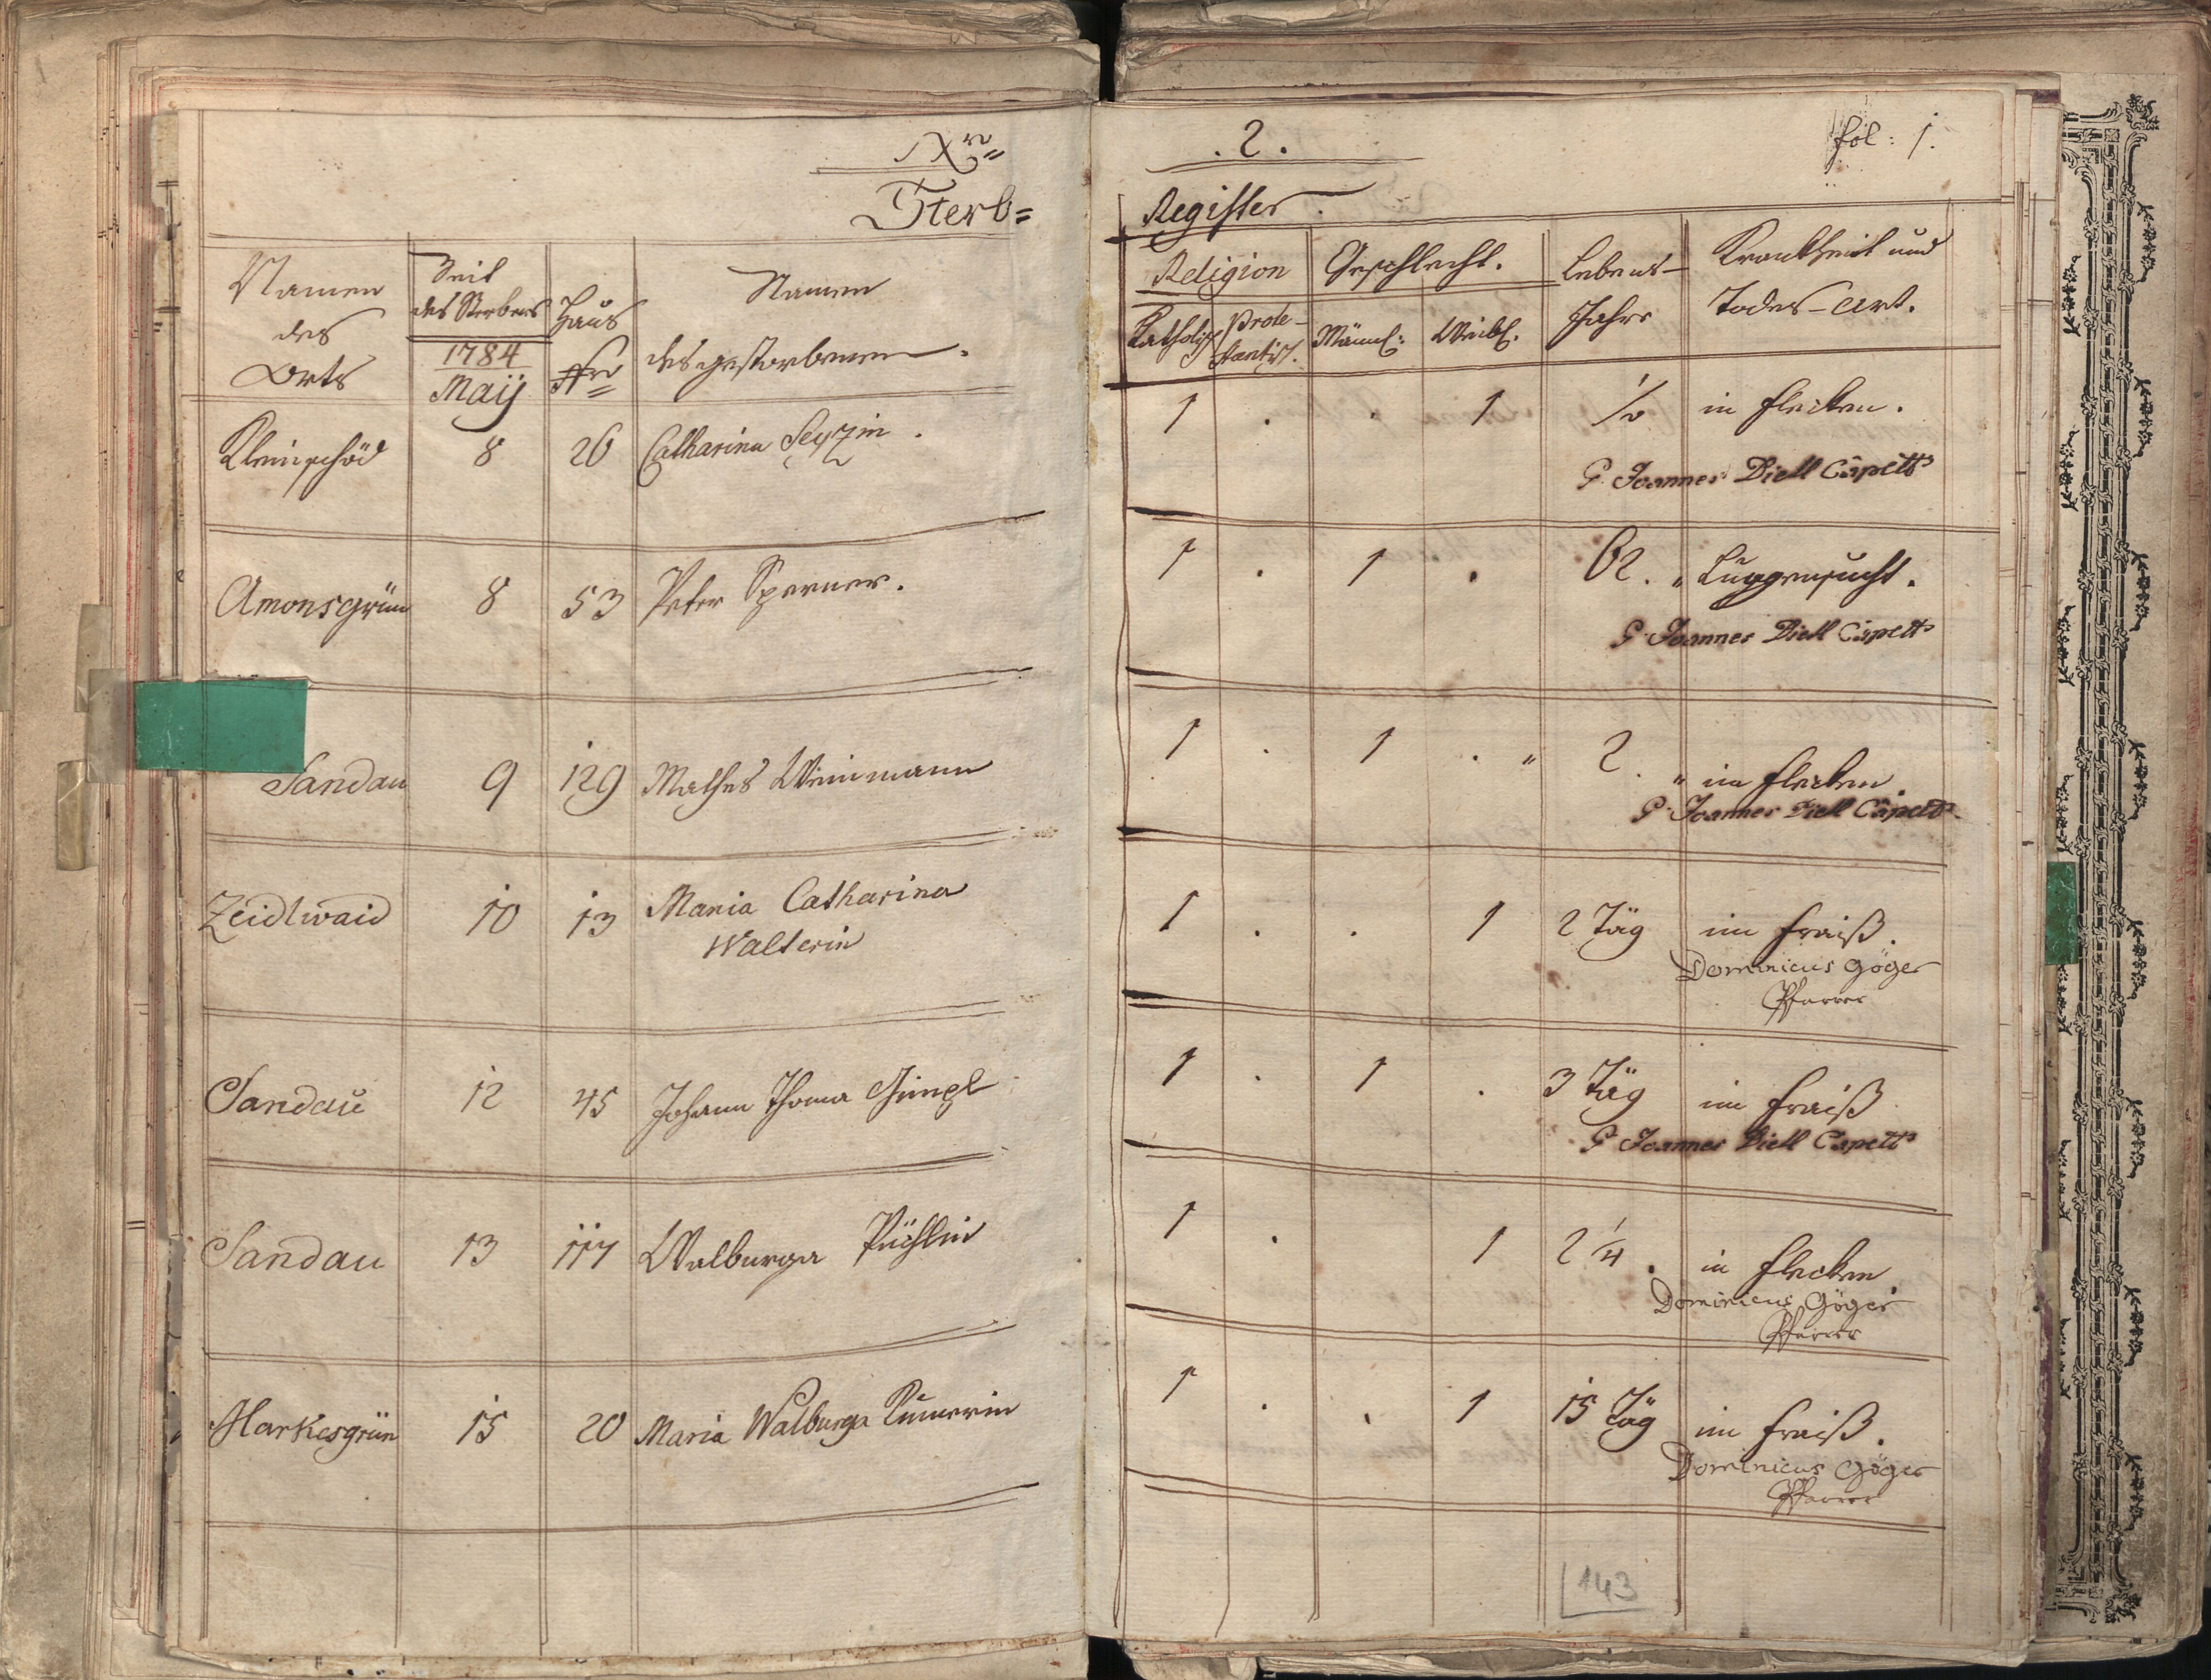 Nro=
.2.
fol: 1.
Sterb=
Register.
Namen
des
Orts
Zeit
des Sterbens
1784
Maÿ
Haus
Nro=
Namen
des gestorbenen.
Religion
Katholisch
Prote-
stantisch.
Geschlecht.
Männl:
Weibl.
Lebens-
Jahre
Krankheit und
Todes-Art.
Kleinschöd 8 26 Catharina Seyzin. 1 . . 1 1/2 in flecken.
P. Joannes Diell Capell
Amonsgrün 8 53 Peter Sperner. 1 . 1 . 62. Lungensucht.
P. Joannes Diell Capell
Sandau 9 129 Mathes Weinmann 1 . 1 . 2. im flecken
P. Joannes Diell Capell
Zeidlwaid 10 13 Maria Catharina
Walterin 1 . . 1 2 Täg im fraiß.
Dominicus Göger
Pfarrer
Sandau 12 45 Johann Thoma Gimpl 1 . 1 . 3 Täg im fraiß
P. Joannes Diell Capell
Sandau 13 117 Walburga 1 . 1 2 1/4. in flecken
Dominicus Göger
Pfarrer
Markesgrün 15 20 Maria Walburga 1 . . 1 15 Täg im fraiß.
Dominicus Göger
Pfarrer
143